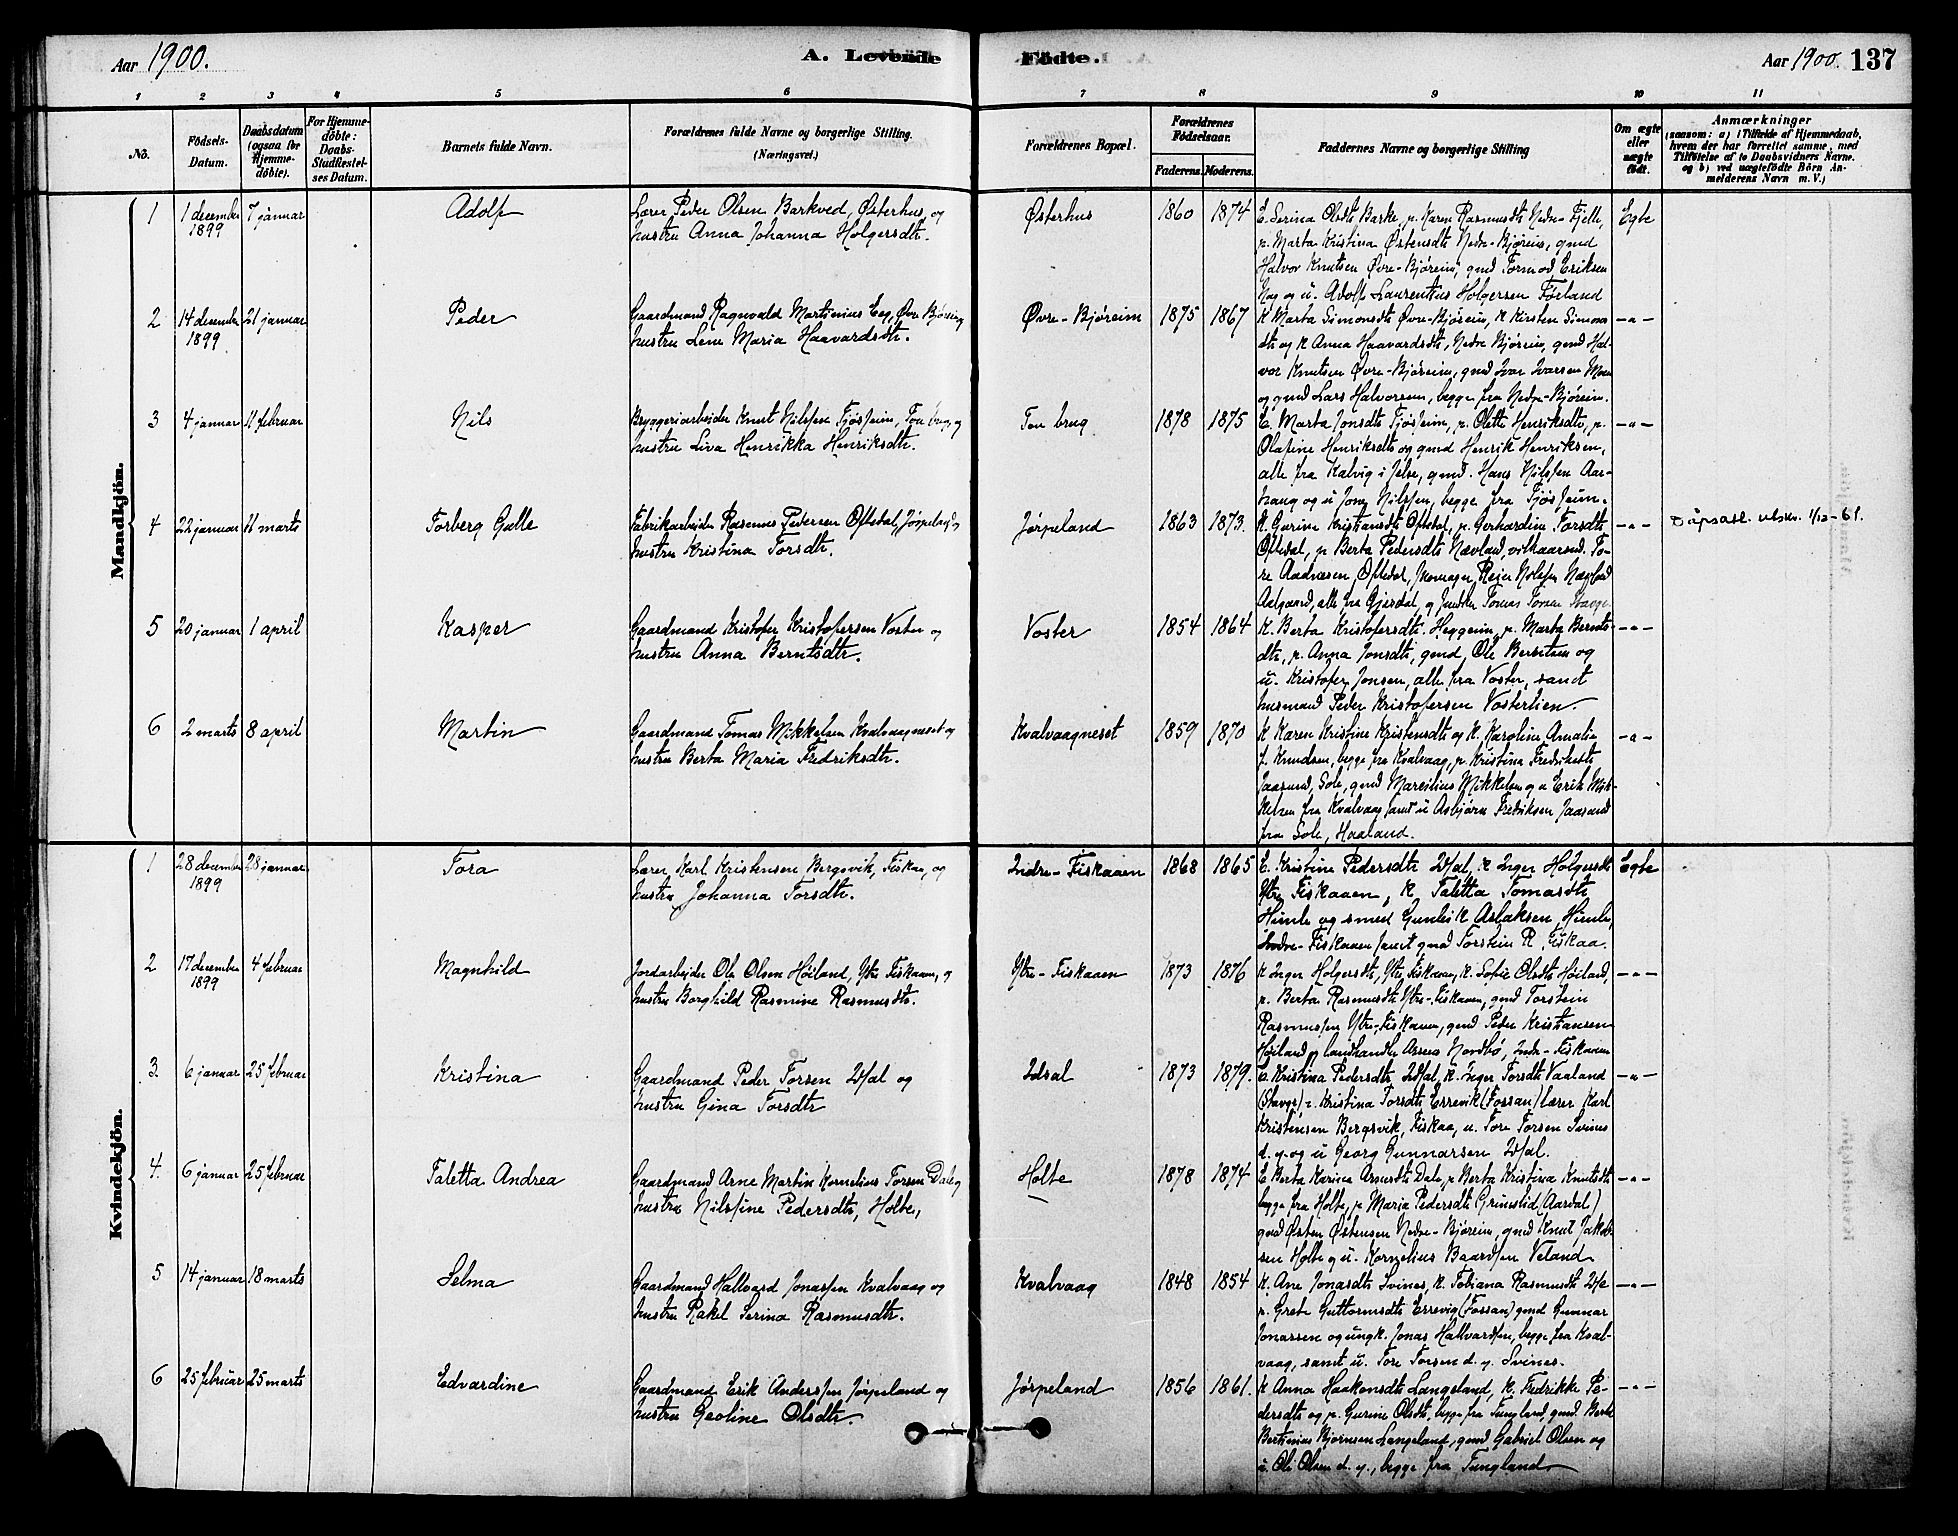 Aar 1900.
A. Levende Födte.
Aar 1900. 137
1 2 3 4 5 6 7 8 9 10 11
No.
Födsels-Datum.
Daabsdatum (ogsaa for Hjemme-döbte).
For Hjemme-döbte: Daabs-Stadfæstel-ses Datum.
Barnets fulde Navn.
Forældrenes fulde Navne og borgerlige Stilling. (Næringsvei.)
Forældrenes Bopæl.
Forældrenes Födselsaar.
Faderens. Moderens.
Faddernes Navne og borgerlige Stilling
Om ægte eller uægte födt.
Anmærkninger
(saasom: a) i Tilfælde af Hjemmedaab, hvem der har forrettet samme, med Tilföielse af to Daabsvidners Navne. og b) ved uægtefödte Börn An-melderens Navn m. V.)
Mandkjön.
1 1 december 1899 7 januar Adolf
Lærer Peder Olsen Barkved, Østerhus, og
hustru Anna Johanna Holgersdtr.
Østerhus 1860 1874
E. Serina Olsdtr Barke, p. Karen Rasmusdtr Nedre-Fjelle,
p. Marta Kristina Østensdtr Nedre-Bjøreim, gmd
Halvor Knutsen Øvre-Bjøreim, gmd Tormod Eriksen
Hag og u. Adolf Laurentius Holgersen Føeland
Egte
2 14 december 1899 21 januar Peder
Gaardmand Ragnvald Martinius Eeg, Øvre Bjøreim og
hustru Lene Maria Haavardsdtr.
Øvre-Bjøreim 1875 1867
K Marta Simonsdtr Øvre-Bjøreim, K Kirsten Simons
dtr og K Anna Haavardsdtr, Nedre Bjøreim, gmd Hal-
vor Knutsen Øvre-Bjøreim, gmd Ivar Ivarsen
og gmd Lars Halvorsen, begge fra Nedre-Bjøreim.
-"-
3 4 januar 11 februar Nils
Bryggeriarbeider Knut Nilssen Fjøsheim, Tou brug, og
hustru Liva Henrikka Henriksdtr.
Tou brug 1878 1875
E. Marta Jonsdtr Fjøsheim, p. Olette Henriksdtr, p.
Olafine Henriksdtr og gmd Henrik Henriksen,
alle fra Kalvig i Jelse, gmd. Hans Nilssen Aar-
haug og u Jon Nilssen, begge fra Fjøsheim.
-"-
4 22 januar 11 marts Torberg Gulle
Fabrikarbeider Rasmus Pedersen Oftedal, Jørpeland, og
hustru Kristina Torsdtr.
Jørpeland 1863 1873.
K. Gurine Kristiansdtr Oftedal, p. Gerhardine Torsdtr
Oftedal, p Berta Pedersdtr Nævland, vilkaarsmd. To-
re Aadnesen Oftedal, skomager Reier Nilssen Nævland
Aalgaard, alle fra Gjesdal, og snedker Tomas Torsen
-"- Dåpsatt. utskr. 1/12-61.
5 20 januar 1 april Kasper
Gaardmand Kristofer Kristofersen Voster og
hustru Anna Berntsdtr.
Voster 1854 1864
K. Berta Kristofersdtr. Heggeim, p. Marta Bernts-
dtr, p. Anna Jonsdtr, gmd Ole Berntsen og
u. Kristofer Jonsen, alle fra Voster, samt
husmand Peder Kristofersen Vosterlien.
-"-
6 2 marts 8 april Martin
Gaardmand Tomas Mikkelsen Kvalvaagneset og
hustru Berta Maria Fredriksdtr.
Kvalvaagneset 1859 1870
K Karen Kristine Kristensdtr og K. Karoline Amalie
f. Knudsen, begge fra Kvalvaag, p. Kristina Fredriksdtr
Jaasund, Sole, gmd Marsilius Mikkelsen og u Erik Mik-
kelsen fra Kvalvaag samt u Asbjørn Fredriksen Jaasund
fra Sole, Haaland.
-"-
Kvindekjön.
1 28 december 1899 28 januar Tora
Lærer Karl Kristensen Bergsvik, Fiskaa, og
hustru Johanna Torsdtr.
Indre-Fiskaaen 1868 1865
E. Kristine Pedersdtr Idsal, K Inger Holgersdtr
Ytre Fiskaaen, K. Taletta Tomasdtr
Himle og smed Gunleik Aslaksen Himle,
Indre-Fiskaaen samt gmd Torstein R. Fiskaa.
Egte
2 17 december 1899 4 februar Magnhild
Jordarbeider Ole Olsen Høiland, Ytre Fiskaaen, og
hustru Borghild Rasmine Rasmusdtr.
Ytre-Fiskaaen 1873 1876
K Inger Holgersdtr, Ytre Fiskaaen, K. Sofie Olsdtr Høiland,
p. Berta Rasmusdtr Ytre-Fiskaaen, gmd Torstein
Rasmussen Ytre-Fiskaaen, gmd Peder Kristiansen
Høiland og landhandler Nordbø, Indre-Fiskaaen
-"-
3. 6 januar 25 februar Kristina
Gaardmand Peder Torsen Idsal og
hustru Gina Torsdtr
Idsal 1873 1879.
E. Kristina Pedersdtr Idsal, K. Inger Torsdtr Vaaland
(Stavgr), p. Kristina Torsdtr Errevik (Fossan) lærer Karl
Kristensen Bergsvik, Fiskaa, u. Tore Torsen Svines
d. y. og u Georg Gunnarsen Idsal.
-"-
4. 6 januar 25 februar Taletta Andrea
Gaardmand Arne Martin Kornelius Torsen Dale og
hustru Nilsine Pedersdtr, Holte,
Holte 1878 1874
E Berta Karina Arnesdtr Dale, p Berta Kristina Knutsdtr
begge fra Holte, p Maria Pedersdtr Grimslid (Aardal)
gmd Østen Østensen Nedre-Bjøreim, gmd Knut Jakob-
sen Holte og u. Kornelius Baardsen Veland
-"-
5 14 januar 18 marts Selma
Gaardmand Hallvard Jonassen Kvalvaag og
hustru Rakel Serina Rasmusdtr.
Kvalvaag 1848 1854
K. Ane Jonasdtr Svines, K. Tobiana Rasmusdtr
p. Grete Guttormsdtr Errevig (Fossan) gmd Gunnar
Jonassen og ungk. Jonas Hallvardsen, begge fra Kval-
vaag, samt u. Tore Torsen d. y. Svines.
-"-
6 25 februar 25 marts Edvardine
Gaardmand Erik Anderssen Jørpeland og
hustru Geoline Olsdtr
Jørpeland 1856 1861.
K Anna Haakonsdtr Langeland, K. Fredrikke Pe-
dersdtr og p. Gurine Olsdtr, begge fra Tungland, gmd. Bernt
Bertinius Bjørnsen Langeland, gmd Gabriel Olsen og
u. Ole Olsen d. y., begge fra Tungland
-"-